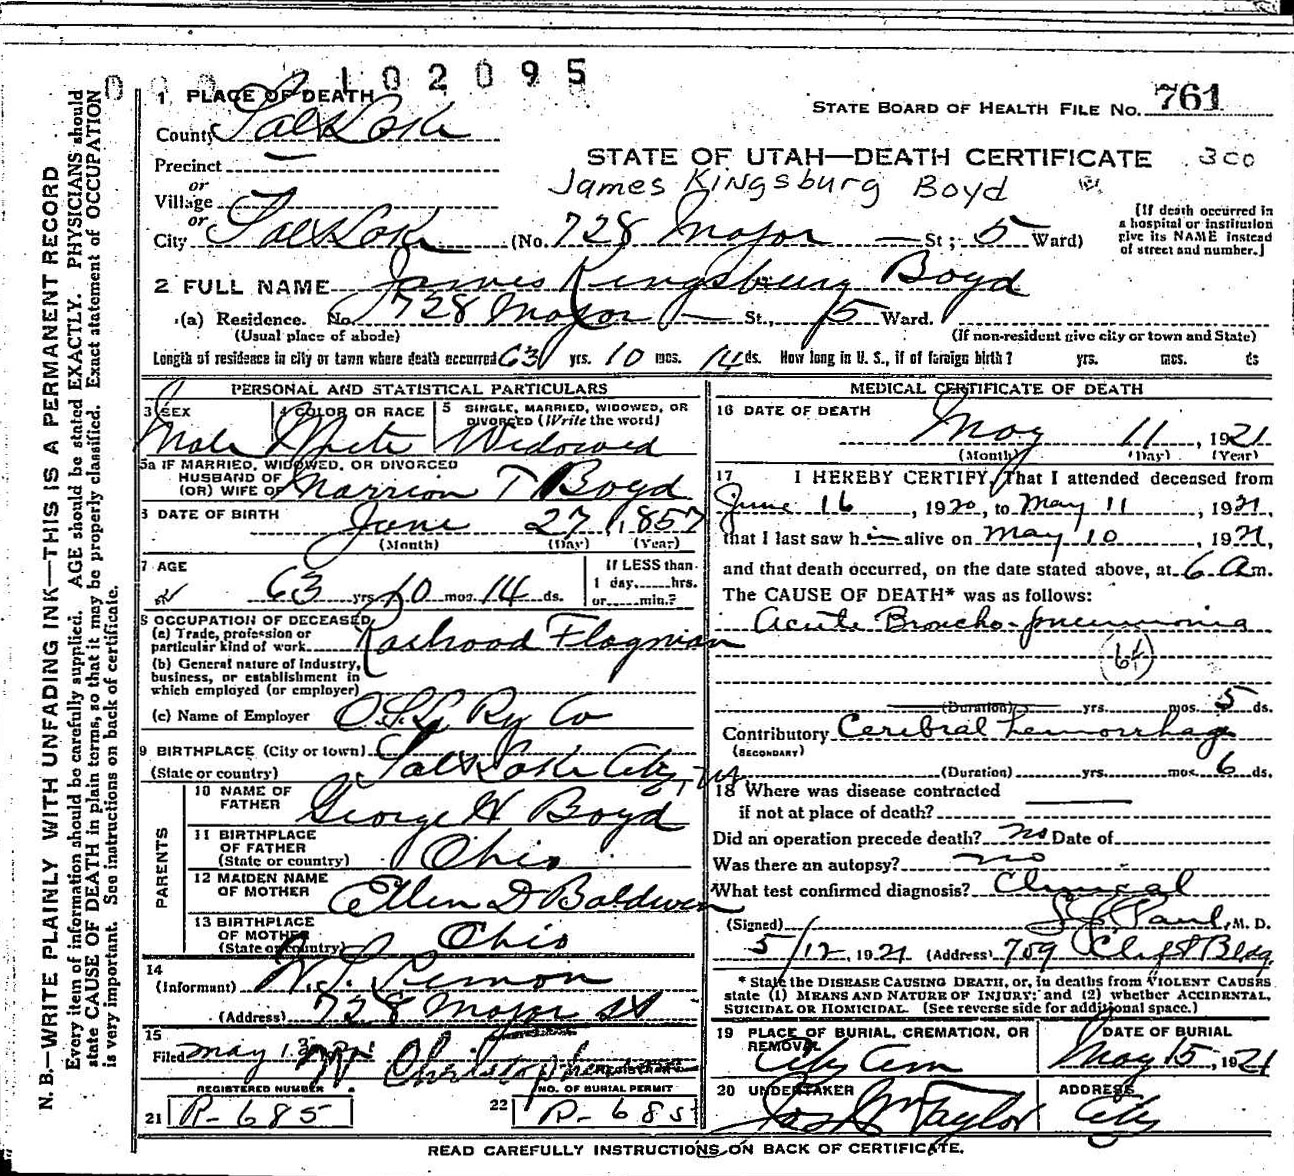 0 102095
1 PLACE OF DEATH
STATE BOARD OF HEALTH FILE NO. 761
County Salt Lake
Precinct —
STATE OF UTAH—DEATH CERTIFICATE 300
James Kingsburg Boyd
or
Village
or
City Salt Lake (No. 728 Major — St; 5 Ward)
[If death occurred in
a hospital or institution
give its NAME instead
of street and number.]
2 FULL NAME James Kingsbury Boyd
(a) Residence. No. 728 Major — St., 5 Ward.
(Usual place of abode) (If non-resident give city or town and State)
Length of residence in city or town where death occurred 63 yrs. 10 mos. 14 ds. How long in U. S., if of foreign birth? yrs. mos. ds
PERSONAL AND STATISTICAL PARTICULARS
3 SEX
Male
4 COLOR OR RACE
White
5 SINGLE, MARRIED, WIDOWED, OR
DIVORCED (Write the word)
Widowed
5a IF MARRIED, WIDOWED, OR DIVORCED
HUSBAND OF
(OR) WIFE OF Marrion T Boyd
6 DATE OF BIRTH
June 27, 1857
(Month) (Day) (Year)
7 AGE
63 yrs 10 mos 14 ds.
If LESS than
1 day......hrs.
or......min.?
8 OCCUPATION OF DECEASED
(a) Trade, profession or
particular kind of work Railroad Flagman
(b) General nature of industry,
business, or establishment in
which employed (or employer)
(c) Name of Employer O.S.L. Ry Co
9 BIRTHPLACE (City or town)
(State or country) Salt Lake City, Ut
PARENTS
10 NAME OF
FATHER George H Boyd
11 BIRTHPLACE
OF FATHER
(State or country) Ohio
12 MAIDEN NAME
OF MOTHER Ellen D Baldwin
13 BIRTHPLACE
OF MOTHER
(State or country) Ohio
14
(Informant)
(Address) 728 Major St
15
Filed May 13 Christophersen
REGISTRAR
REGISTERED NUMBER
21 R-685
NO. OF BURIAL PERMIT
22 R-685
MEDICAL CERTIFICATE OF DEATH
16 DATE OF DEATH
May 11, 1921
(Month) (Day) (Year)
17 I HEREBY CERTIFY, That I attended deceased from
June 16, 1920, to May 11, 1921,
that I last saw him alive on May 10, 1921,
and that death occurred, on the date stated above, at 6 a m.
The CAUSE OF DEATH* was as follows:
Acute Broncho-pneumonia
(Duration) yrs. mos. 5 ds.
Contributory Cerebral hemorrhage
(SECONDARY)
(Duration) yrs. mos. 6 ds.
18 Where was disease contracted
if not at place of death?
Did an operation precede death? no Date of
Was there an autopsy? no
What test confirmed diagnosis? Clinical
(Signed) Paul, M. D.
5/12, 1921 (Address) 709 Clift Bldg.
* State the DISEASE CAUSING DEATH, or, in deaths from VIOLENT CAUSES
state (1) MEANS AND NATURE OF INJURY; and (2) whether ACCIDENTAL,
SUICIDAL OR HOMICIDAL. (See reverse side for additional space.)
19 PLACE OF BURIAL, CREMATION, OR
REMOVAL
City Cem
DATE OF BURIAL
May 15, 1921
20 UNDERTAKER
Jos Wm Taylor
ADDRESS
City
READ CAREFULLY INSTRUCTIONS ON BACK OF CERTIFICATE.
N. B.—WRITE PLAINLY WITH UNFADING INK—THIS IS A PERMANENT RECORD
Every item of information should be carefully supplied. AGE should be stated EXACTLY. PHYSICIANS should
state CAUSE OF DEATH in plain terms, so that it may be properly classified. Exact statement of OCCUPATION
is very important. See instructions on back of certificate.